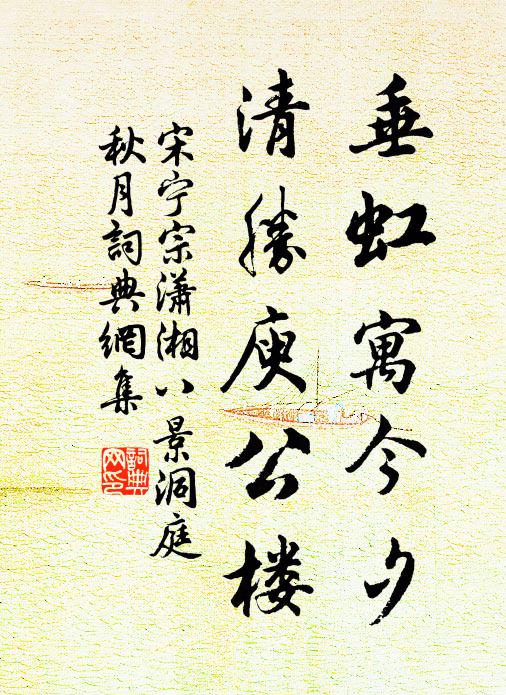 垂虹寓今夕
清勝庾公楼
宋宁宗瀟湘八景洞庭
秋月詞典網集
詞典
网印